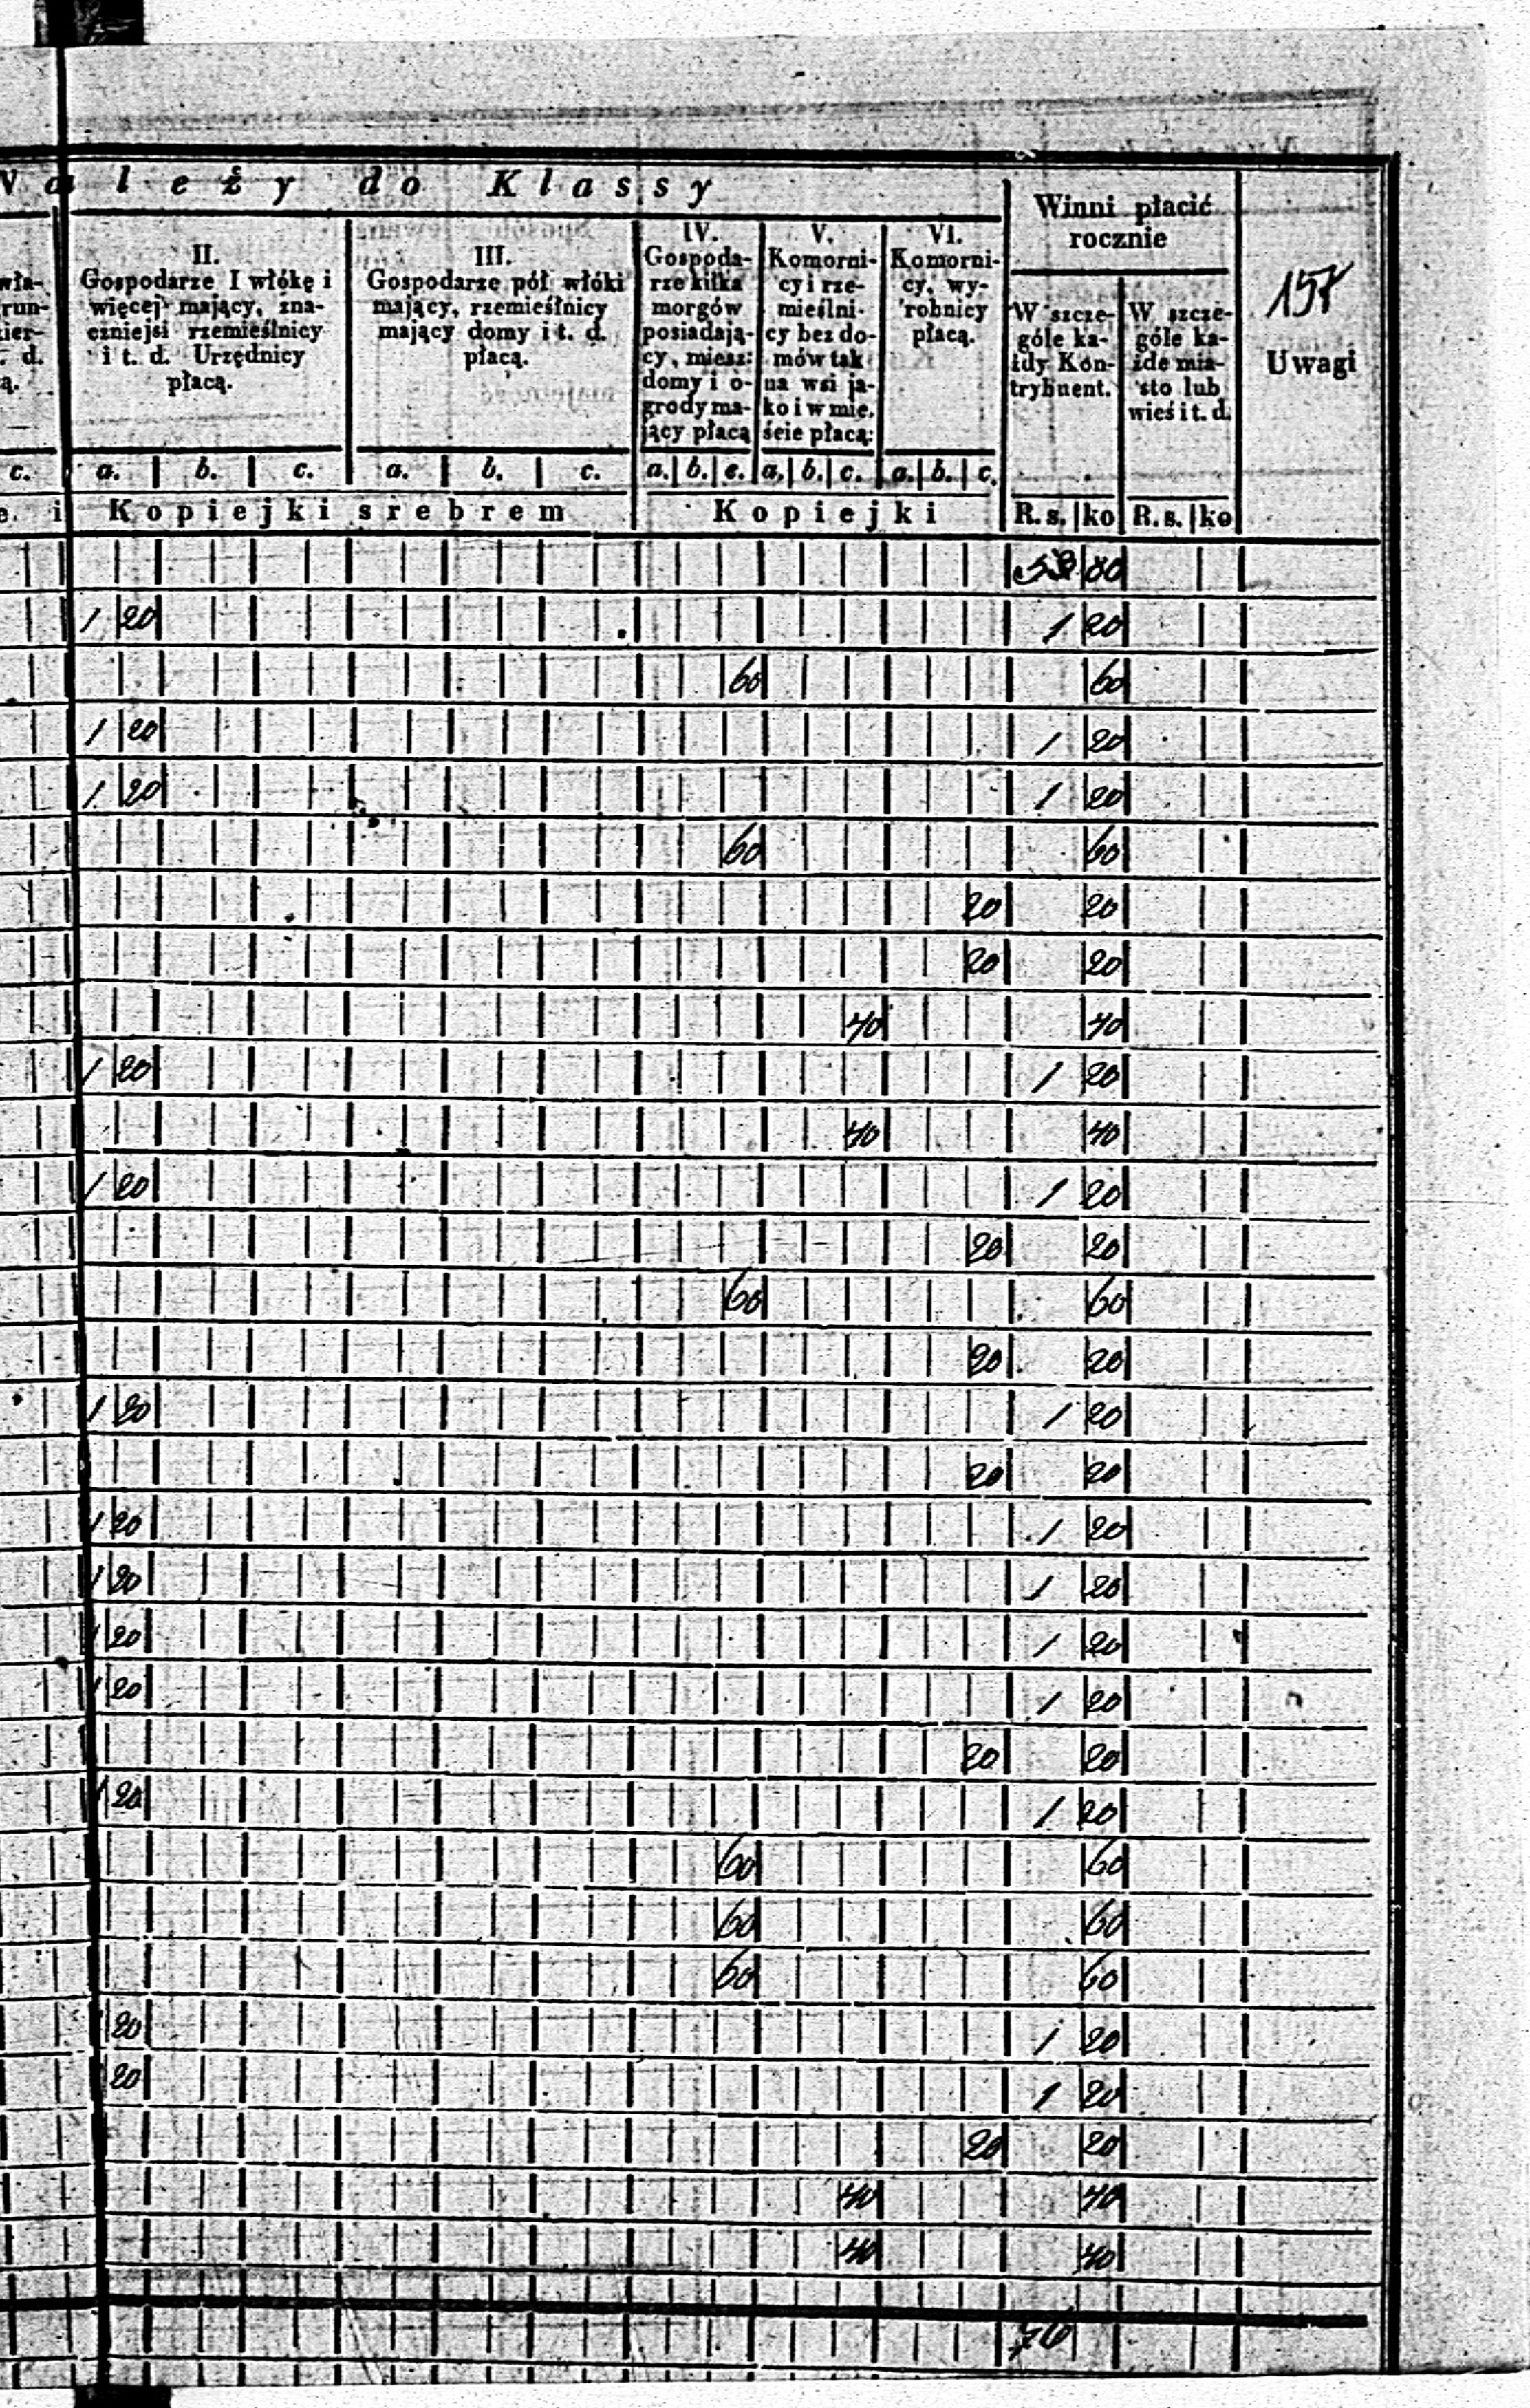 leży do Klassy
Winni płacić
rocznie
157
Uwagi
II.
Gospodarze I włókę i
więcej mający, zna-
czniejsi rzemieślnicy
i t. d. Urzędnicy
płacą.
III.
Gospodarze pół włóki
mający, rzemieślnicy
mający domy i t. d.
płacą.
IV.
Gospoda-
rze kilka
morgów
posiadają-
cy, miesz:
domy i o-
grody ma-
jący płacą
V.
Komorni-
cy i rze-
mieślni-
cy bez do-
mów tak
na wsi ja-
ko i w mie-
ście płacą:
VI.
Komorni-
cy, wy-
robnicy
płacą.
W szcze-
góle ka-
żdy Kon-
trybuent.
W szcze-
góle ka-
żde mia-
sto lub
wieś i t. d.
c. a. b. c. a. b. c. a. b. c. a. b. c. a. b. c.
Kopiejki srebrem Kopiejki R. s. ko R. s. ko
80
1 20 1 20
60 60
1 20 1 20
1 20 1 20
60 60
20 20
20 20
40 40
1 20 1 20
40 40
1 20 1 20
20 20
60 60
20 20
1 20 1 20
20 20
1 20 1 20
1 20 1 20
1 20 1 20
1 20 1 20
20 20
1 20 1 20
60 60
60 60
60 60
20 1 20
20 1 20
20 20
40 40
40 40